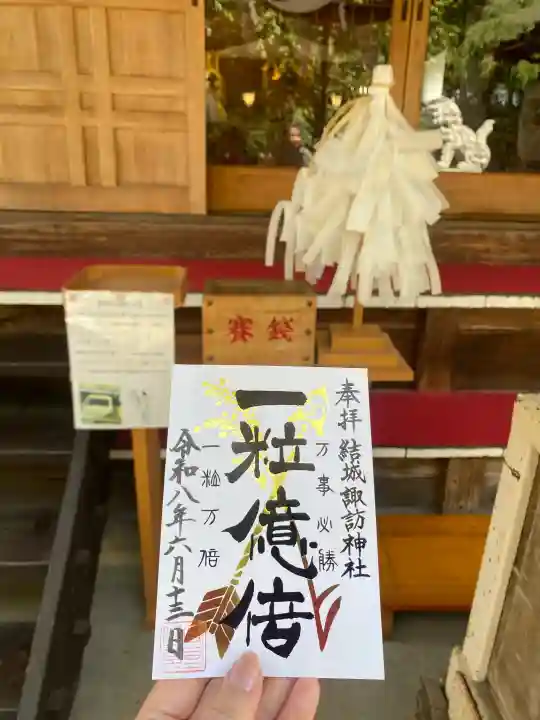 賽銭
奉拝 結城諏訪神社
万事必勝
一粒億倍
一粒万倍
令和八年六月十三日